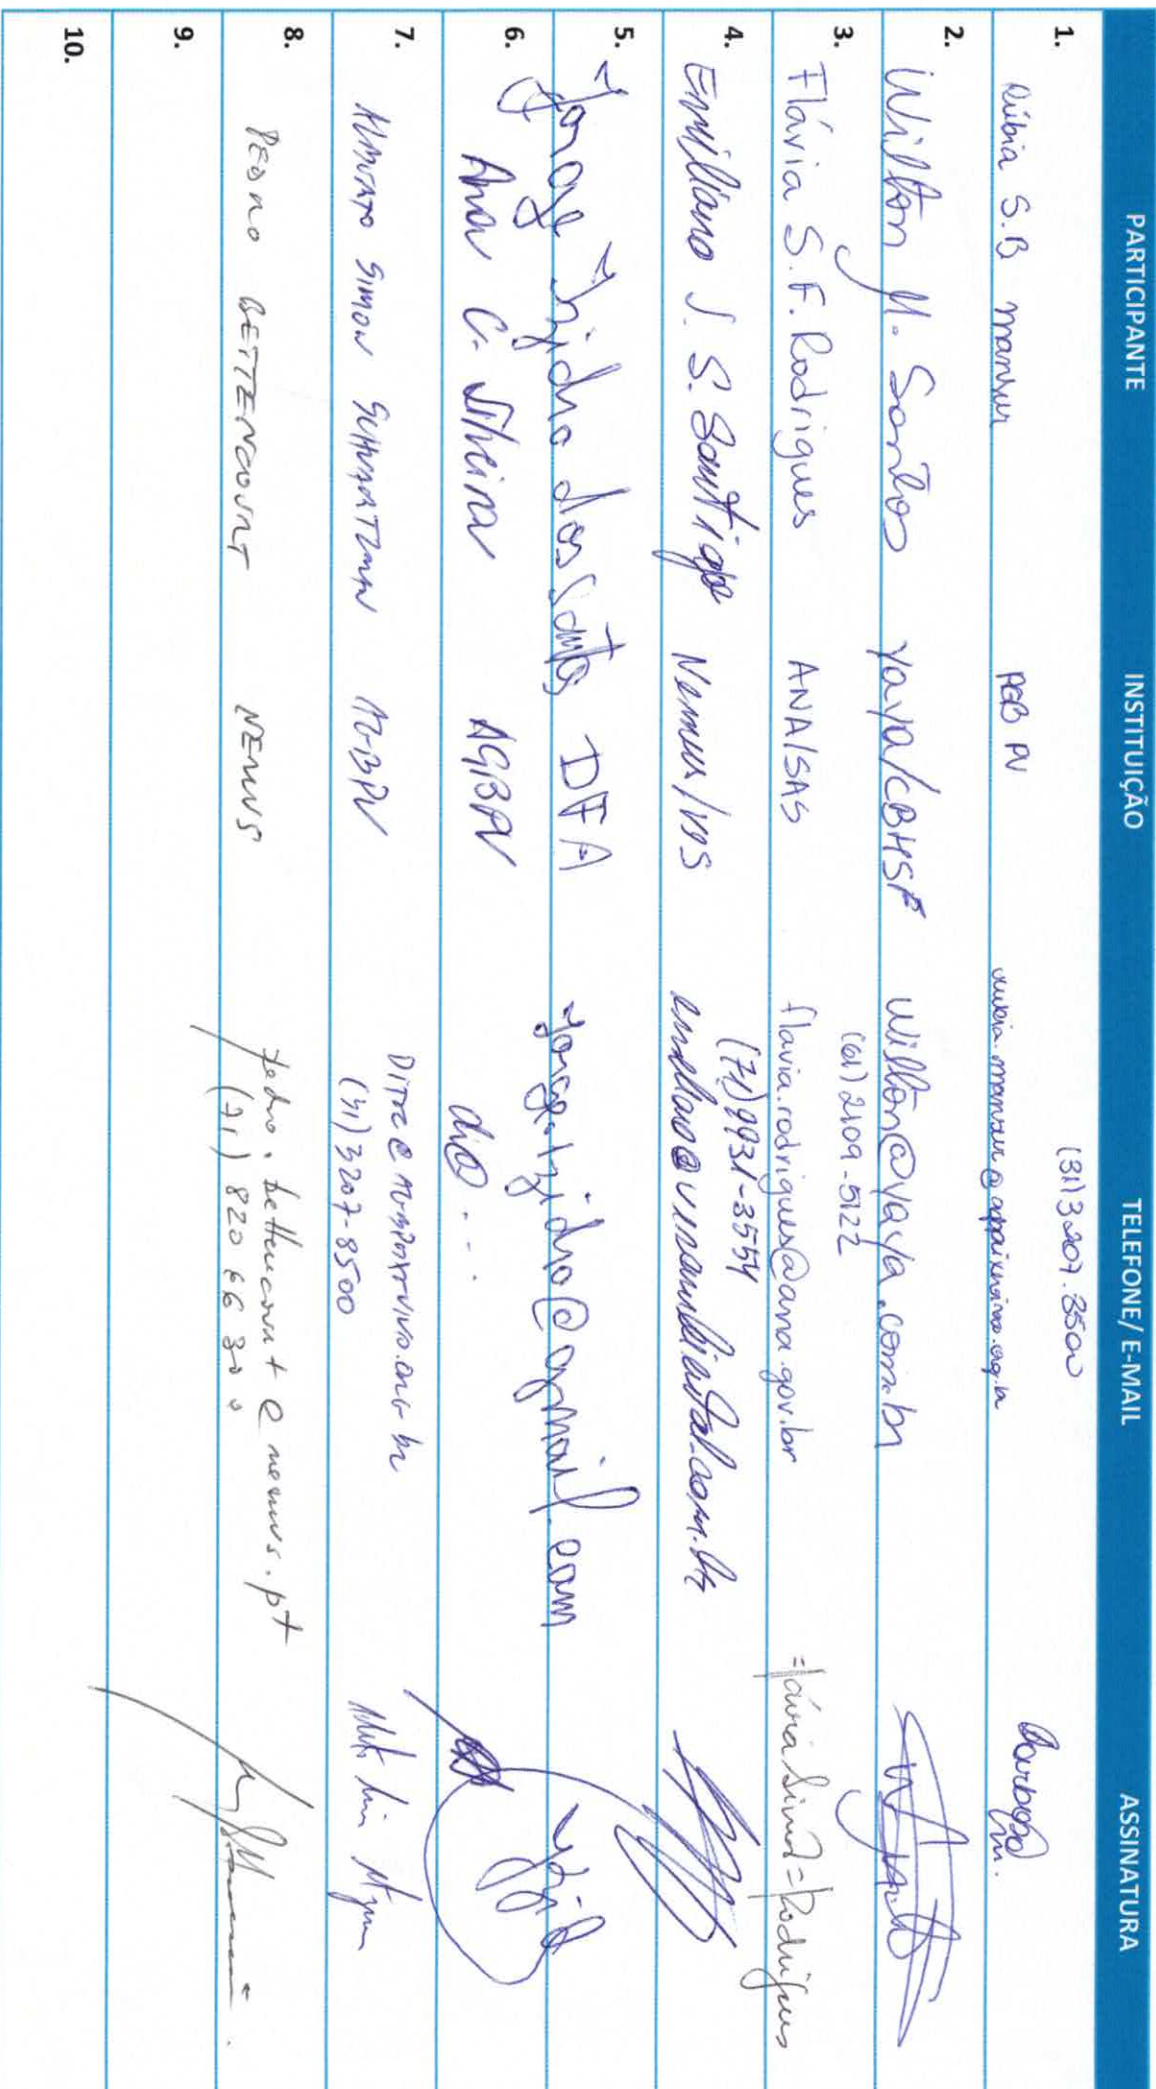 PARTICIPANTE INSTITUIÇÃO TELEFONE/ E-MAIL ASSINATURA
1. Rúbia S.B Mansur AGB PV (31)3207.8500
rubia.mansur@agbpeixevivo.org.br
Barbosa
2. Wilton M. Santos Yayá/CBHSF wilton@yaya.com.br
3. Flávia S.F. Rodrigues ANA/SAS (61)2109-5122
flavia.rodrigues@ana.gov.br
Flávia Simões Rodrigues
4. Emiliano J. S. Santiago Nemus/V&S (71)9931-3554
5. Jorge Izidro dos Santos DFA jorge.izidro@gmail.com
6. Ana C. Silveira AGBPV
7. Alberto Simon Schvartzman AGBPV
(31)3207-8500
8. PEDRO BETTENCOURT NEMUS pedro.bettencourt@nemus.pt
9.
10.